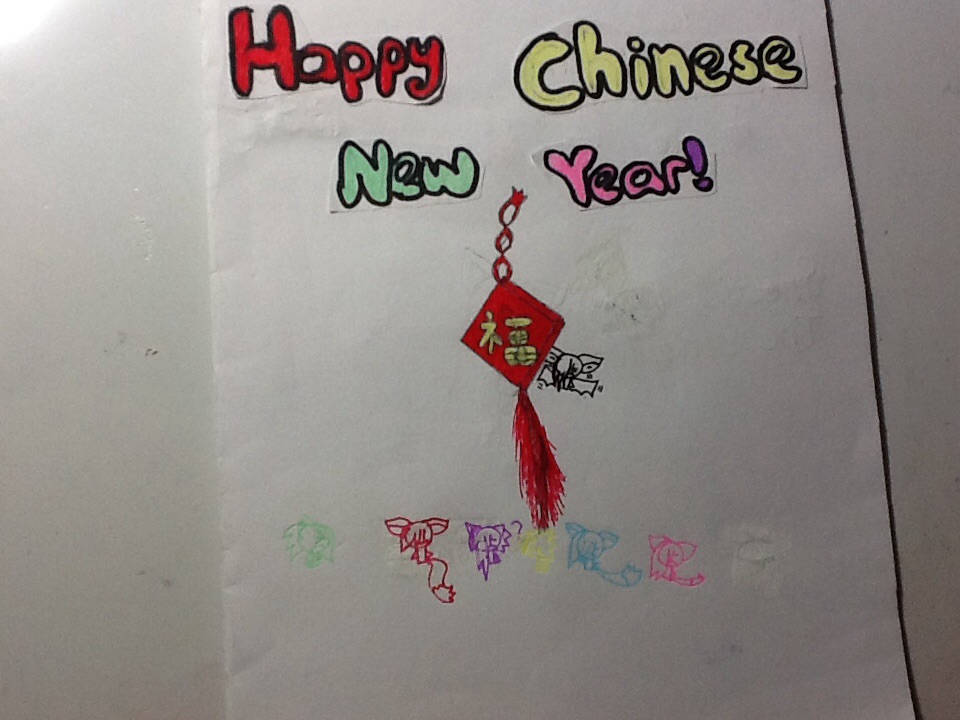 Happy Chinese
New Year!
福